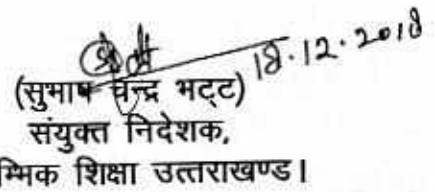 18.12.2018
(सुभाष चन्द्र भट्ट)
संयुक्त निदेशक,
म्भिक शिक्षा उत्तराखण्ड।